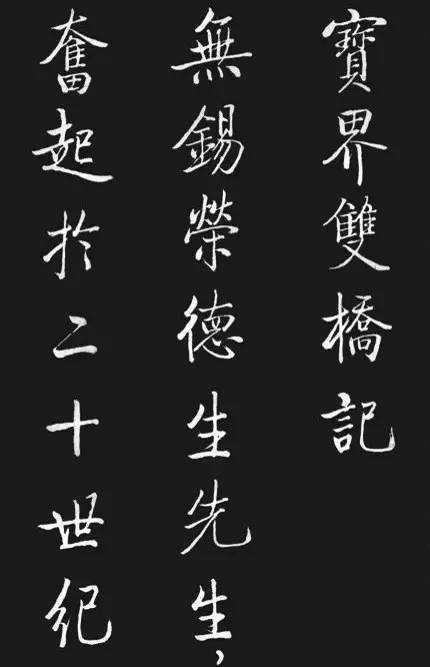 寶界雙橋記
無錫榮德生先生，
奮起於二十世紀